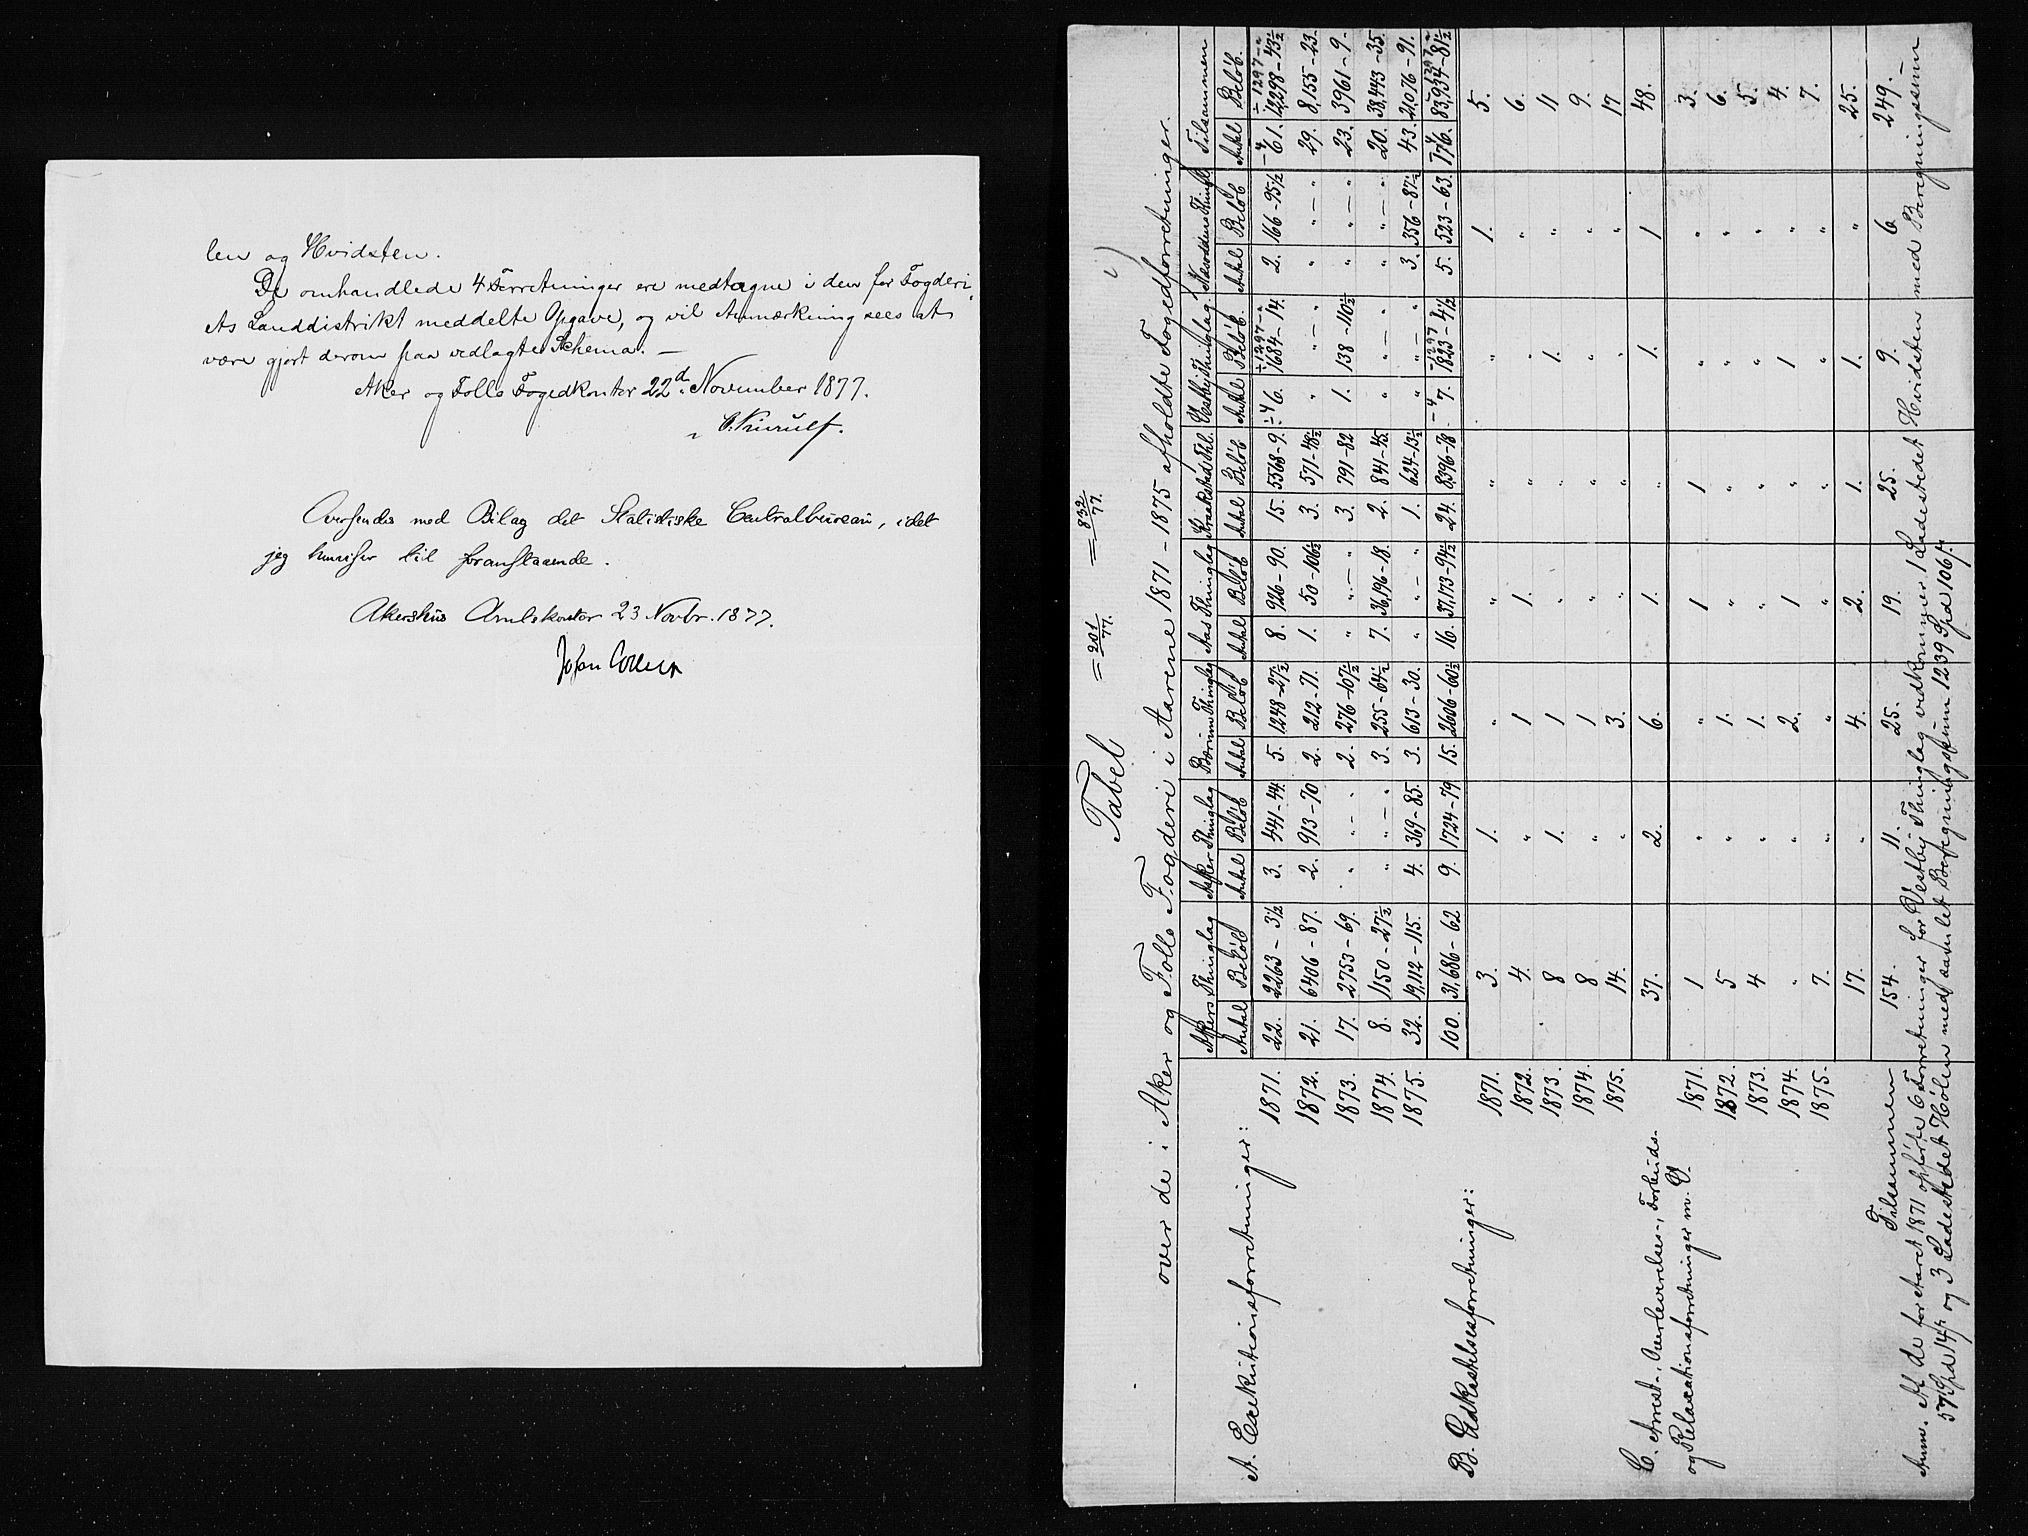 len og Hvidsten.
De omhandlede 4 Forretninger ere medtagne i den for Fogderi-
ets Landdistrikt meddelte Opgave, og vil Anmærkning sees at
være gjort derom paa vedlagte Schema. —
Aker og Follo Fogedkontor 22d November 1877.
Oversendes med Bilag det Statistiske Centralbureau, idet
jeg henviser til foranstaaende.
Akershus Amtskontor 23 Novbr. 1877.
Johan Collett
Tabel = 201/77. = 832/77.
over de i Aker og Follo Fogderi i Aarene 1871 - 1875 afholdte Fogedforretninger.
Akers Thinglag Asker Thinglag Bærums Thinglag Aas Thinglag Kraakstad Thl. Vestby Thinglag Næsoddens Thinglag Tilsammen
Antal Beløb Antal Beløb Antal Beløb Antal Beløb Antal Beløb Antal Beløb Antal Beløb Antal Beløb.
÷4 ÷1297-" ÷4 ÷1297-"
A. Exekutionsforretninger: 1871. 22. 2263 - 3½ 3. 441-44. 5. 1248-27½ 8. 926-90. 15. 5568-9. 6. 1684-14. 2. 166-95½ 61. 12,298-43½
1872. 21. 6406-87. 2. 913-70 2. 212-71. 1. 50-106½ 3. 571-48½ " "-" " "-" 29. 8,155-23.
1873. 17. 2753-69. " "-" 2. 276-107½ " "-" 3. 791-82 1. 138-110½ " "-" 23. 3961-9.
1874. 8. 1150-27½ " "-" 3. 255-64½ 7. 36,196-18. 2. 841-45. " "-" " "-" 20. 38,443-35.
1875. 32. 19,112-115. 4. 369-85. 3. 613-30. " "-" 1. 624-13½ " "-" 3. 356-87½ 43. 21,076-91.
100. 31,686-62 9. 1724-79 15. 2606-60½ 16. 37,173-94½ 24. 8,396-78 7. 1823-4½ 5. 523-63. 176. 83,934-81½
B. Udkastelsesforretninger: 1871. 3. 1. " " " " 1. 5.
1872. 4. " 1 1. " " " 6.
1873. 8 1. 1 " " 1. " 11
1874. 8 " 1 " " " " 9.
1875. 14. " 3. " " " " 17
37. 2. 6. 1. " 1. 1 48.
C. Arrest-, Overleverelses-, Forbuds-
og Relaxationsforretninger m. V.
1871. 1 " " 1 1 " " 3.
1872. 5 " 1. " " " " 6.
1873. 4 " 1. " " " " 5.
1874. " " 2. 1 " 1 " 4.
1875. 7. " " " " " " 7.
17. " 4. 2. 1. 1. " 25.
Tilsammen 154. 11. 25. 19. 25. 9. 6. 249.
Anm. Af de for Aaret 1871 opførte 6 Forretninger for Vestby Thinglag vedkommer 1 Ladestedet Hvidsten med Beregningssum
57 Spd 14 ß og 3 Ladestedet Hølen med samlet Beregningssum 1239 Spd 106 ß.